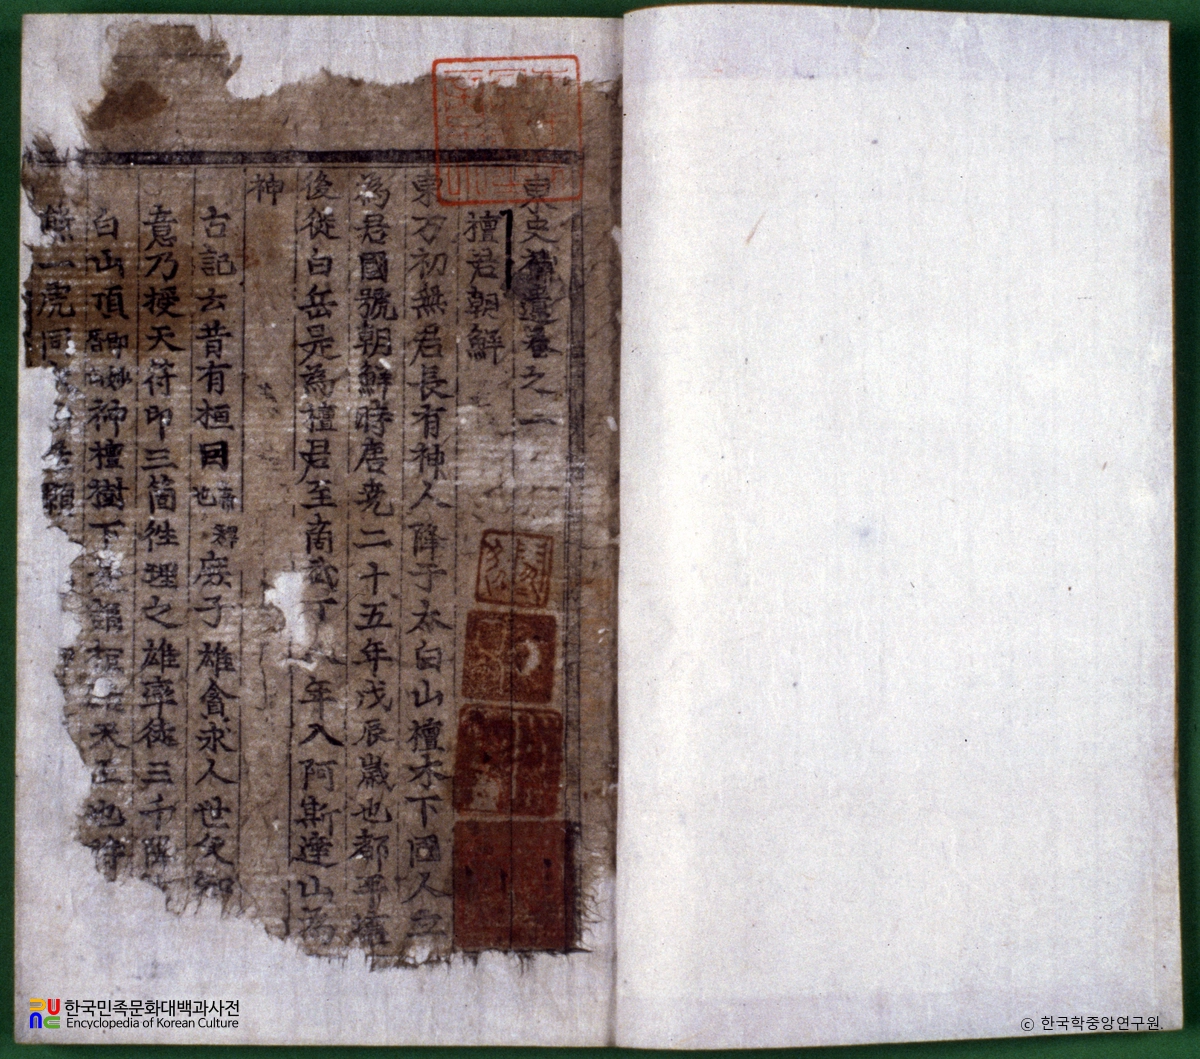 東史補遺卷之一
檀君朝鮮
東方初無君長有神人降于太白山檀木下國人立
為君國號朝鮮時唐尭二十五年戊辰歲也都平壤
後徙白岳是為檀君至商武丁八年入阿斯達山為
神
古記云昔有桓因帝釋也庻子雄貪求人世父知
意乃授天符印三箇徃理之雄率徒三千降
白山頂即妙香山神檀樹下是謂桓雄天王也時
熊一虎同
願
한국민족문화대백과사전
Encyclopedia of Korean Culture
© 한국학중앙연구원.